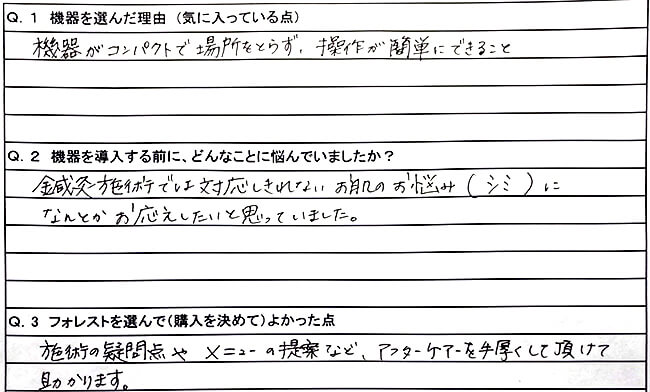 Q. 1 機器を選んだ理由（気に入っている点）
機器がコンパクトで場所をとらず、操作が簡単にできること
Q. 2 機器を導入する前に、どんなことに悩んでいましたか？
鍼灸施術では対応しきれないお肌のお悩み（シミ）に
なんとかお応えしたいと思っていました。
Q. 3 フォレストを選んで（購入を決めて）よかった点
施術の疑問点やメニューの提案など、アフターケアーを手厚くして頂けて
助かります。